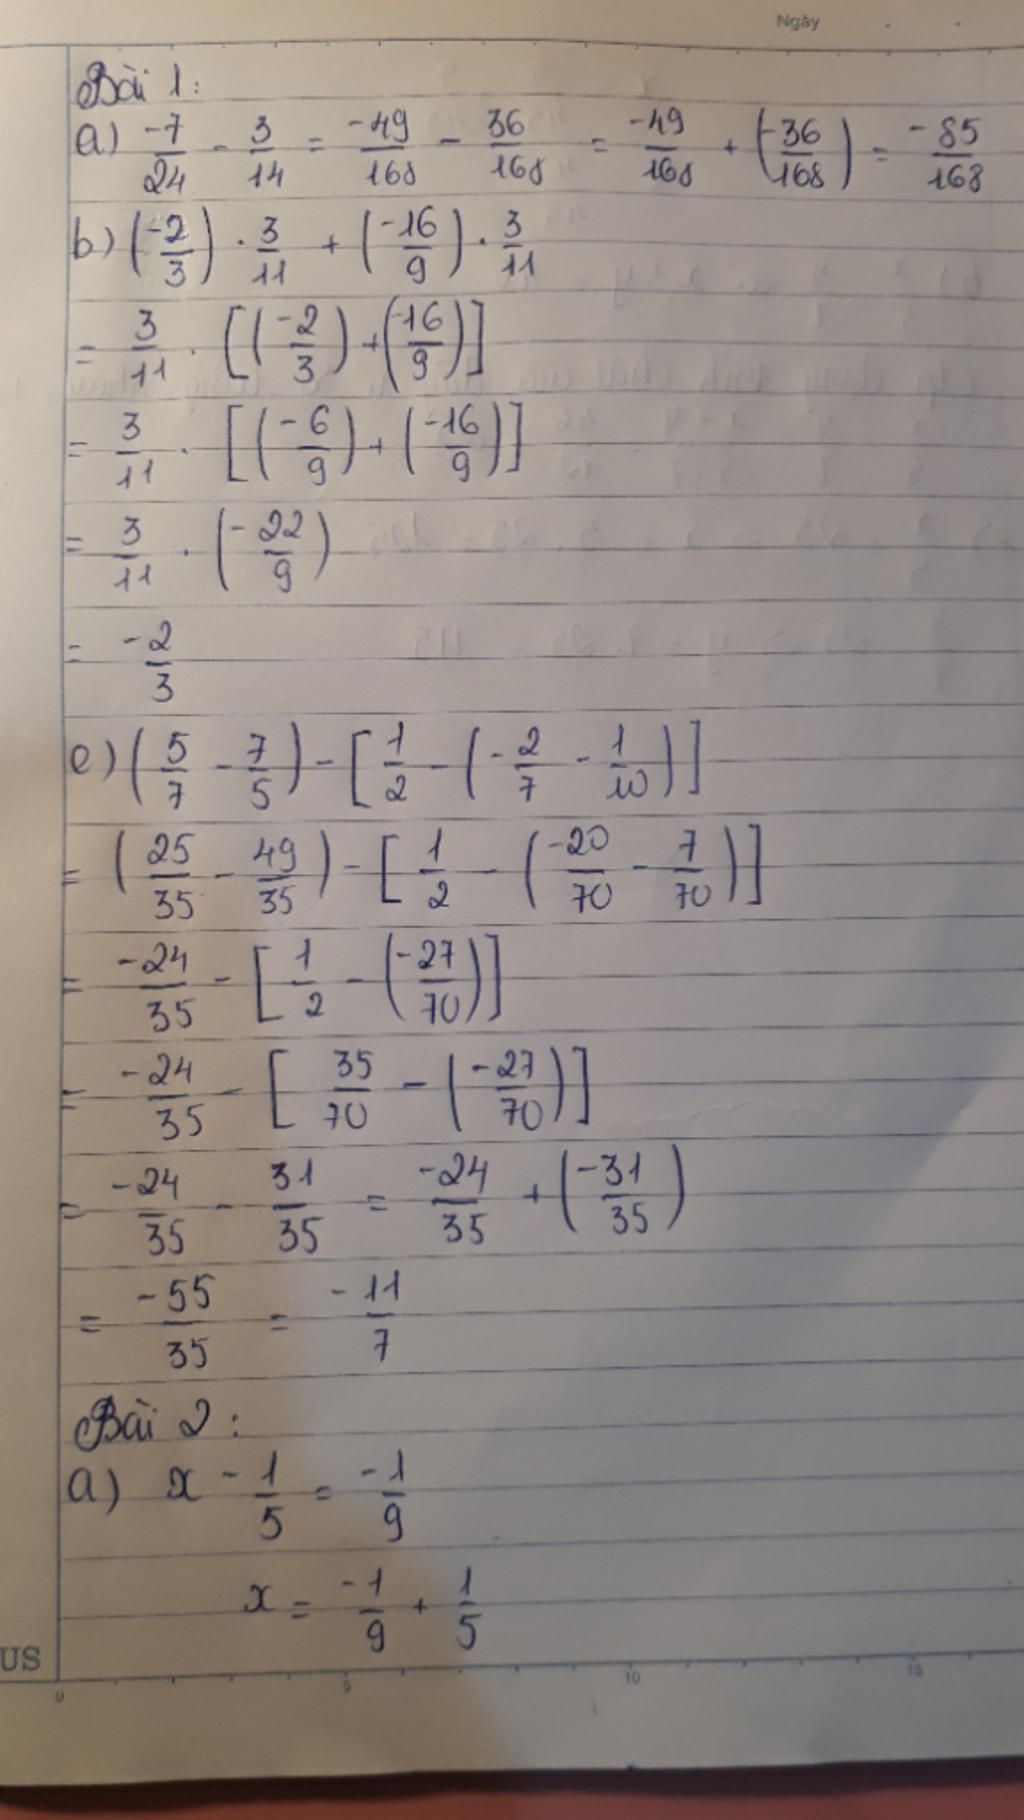 Ngày
Bài 1:
a) -7/24 - 3/14 = -49/168 - 36/168 = -49/168 + (-36/168) = -85/168
b) (-2/3) . 3/11 + (-16/9) . 3/11
= 3/11 . [(-2/3) + (-16/9)]
= 3/11 . [(-6/9) + (-16/9)]
= 3/11 . (-22/9)
= -2/3
c) (5/7 - 7/5) - [1/2 - (-2/7 - 1/10)]
= (25/35 - 49/35) - [1/2 - (-20/70 - 7/70)]
= -24/35 - [1/2 - (-27/70)]
= -24/35 - [35/70 - (-27/70)]
= -24/35 - 31/35 = -24/35 + (-31/35)
= -55/35 = -11/7
Bài 2:
a) x - 1/5 = -1/9
x = -1/9 + 1/5
US
0 5 10 15